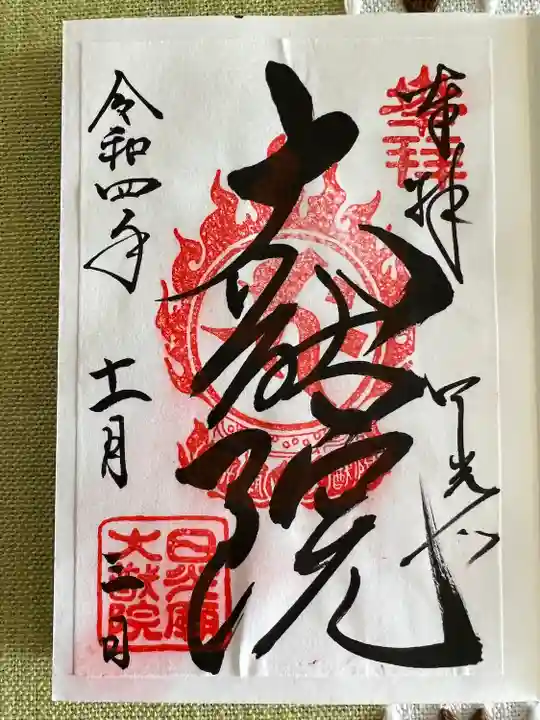 奉拝
日光山
大猷院
令和四年
十一月
三日
日光廟
大猷院